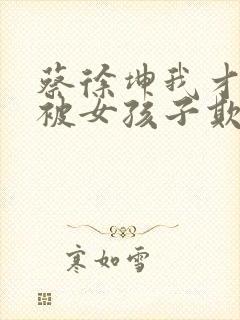 蔡徐坤我才
被女孩子欺
寒如雪